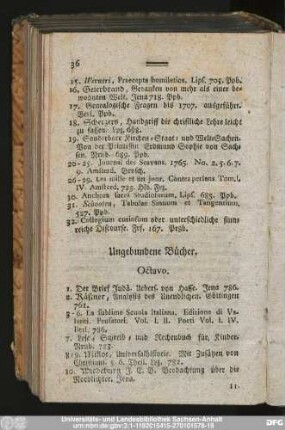 36
15. Werneri, Praecepta homiletica. Lips. 705. Ppb.
16. Geierbrand, Gedanken von mehr als einer be-
wohnten Welt. Jena 718. Ppb.
17. Genealogische Fragen bis 1707. ausgeführet.
Berl. Ppb.
18. Scherzers, Handgriff die christliche Lehre leicht
zu fassen. Lpz. 668.
19. Sonderbare Kirchen-Staat- und Welt-Sachen.
Von der Prinzessin Edmund Sophie von Sach-
sen. Nrnb. 689. Ppb.
20-25. Journal des Savans. 1765. No. 2. 5. 6. 7.
9. Amsterd. Brosch.
26-29. Les mille et un jour. Contes persans Tom. I.
IV. Amsterd. 723. Hlb. Frz.
30. Anchora sacra Studiosorum, Lips. 685. Ppb.
31. Schooten, Tabulae Sinuum et Tangentium,
527. Ppb.
32. Collegium curiosum oder unterschiedliche sinn-
reiche Discourse. Frf. 167. Prgb.
Ungebundene Bücher.
Octavo.
1. Der Brief Judä. Uebers. von Hasse. Jena 786.
2. Kästner, Analysis des Unendlichen. Göttingen
761.
3-6. La sublime Scuola Italiana. Edizione di
Prosatori. Vol. I. II. Poeti Vol. I. IV.
Berl. 786.
7. Lese, Schreib, und Rechenbuch für Kinder.
Nrnb. 783.
8 u 9. Universalhistorie. Mit Zusätzen von
5. 6. Theil. Lpz. 782.
10. Wiedeburg J. L. B. Beobachtung über die
Nordlichter. Jena.
11.
Universitäts- und Landesbibliothek Sachsen-Anhalt
urn:nbn:de:gbv:3:1-1192015415-270101578-18
DFG